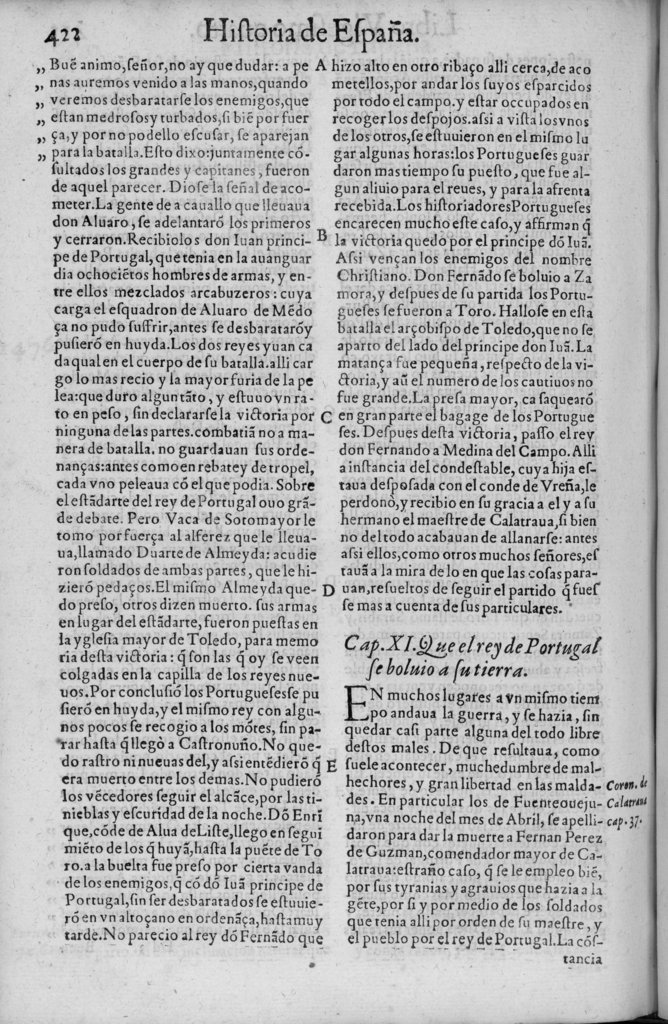 422 Historia de España.
„ Buẽ animo,señor,no ay que dudar: a pe
„ nas auremos venido a las manos,quando
„ veremos desbaratarse los enemigos,que
„ estan medrosos y turbados,si biẽ por fuer
„ ça,y por no podello escusar, se aparejan
„ para la batalla.Esto dixo:juntamente cõ-
sultados los grandes y capitanes, fueron
de aquel parecer. Diose la señal de aco-
meter.La gente de a cauallo que lleuaua
don Aluaro, se adelantarõ los primeros
y cerraron.Recibiolos don Iuan princi-
pe de Portugal, que tenia en la auanguar
dia ochociẽtos hombres de armas, y en-
tre ellos mezclados arcabuzeros : cuya
carga el esquadron de Aluaro de Mẽdo
ça no pudo suffrir,antes se desbaratarõ y
pusierõ en huyda.Los dos reyes yuan ca
da qual en el cuerpo de su batalla.alli car
go lo mas recio y la mayor furia de la pe
lea:que duro algun tãto, y estuuo vn ra-
to en peso, sin declararse la victoria por
ninguna de las partes.combatiã no a ma-
nera de batalla. no guardauan sus orde-
nanças:antes como en rebate y de tropel,
cada vno peleaua cõ el que podia. Sobre
el estãdarte del rey de Portugal ouo grã-
de debate. Pero Vaca de Sotomayor le
tomo por fuerça al alferez que le lleua-
ua,llamado Duarte de Almeyda: acudie
ron soldados de ambas partes, que le hi-
zierõ pedaços.El mismo Almeyda que-
do preso, otros dizen muerto. sus armas
en lugar del estãdarte, fueron puestas en
la yglesia mayor de Toledo, para memo
ria desta victoria : q̃ son las q̃ oy se veen
colgadas en la capilla de los reyes nue-
uos.Por conclusiõ los Portugueses se pu
sierõ en huyda,y el mismo rey con algu-
nos pocos se recogio a los mõtes, sin pa-
rar hasta q̃ llegò a Castronuño.No que-
do rastro ni nueuas del,y assi entẽdierõ q̃
era muerto entre los demas.No pudierõ
los vẽcedores seguir el alcãce,por las ti-
nieblas y escuridad de la noche.Dõ Enri
que,cõde de Alua de Liste,llego en segui
miẽto de los q̃ huyã,hasta la puẽte de To
ro.a la buelta fue preso por cierta vanda
de los enemigos,q̃ cõ dõ Iuã principe de
Portugal,sin ser desbaratados se estuuie-
rõ en vn altoçano en ordenãça,hasta muy
tarde.No parecio al rey dõ Fernãdo que
A
B
C
D
E
hizo alto en otro ribaço alli cerca,de aco
metellos,por andar los suyos esparcidos
por todo el campo.y estar occupados en
recoger los despojos.assi a vista los vnos
de los otros,se estuuieron en el mismo lu
gar algunas horas:los Portugueses guar
daron mas tiempo su puesto, que fue al-
gun aliuio para el reues, y para la afrenta
recebida.Los historiadores Portugueses
encarecen mucho este caso,y affirman q̃
la victoria quedo por el principe dõ Iuã.
Assi vençan los enemigos del nombre
Christiano. Don Fernãdo se boluio a Za
mora,y despues de su partida los Portu-
gueses se fueron a Toro. Hallose en esta
batalla el arçobispo de Toledo,que no se
aparto del lado del principe don Iuã.La
matança fue pequeña, respecto de la vi-
ctoria,y aũ el numero de los cautiuos no
fue grande.La presa mayor, ca saquearõ
en gran parte el bagage de los Portugue
ses. Despues desta victoria, passo el rey
don Fernando a Medina del Campo. Alli
a instancia del condestable, cuya hija es-
taua desposada con el conde de Vreña,le
perdonò,y recibio en su gracia a el y a su
hermano el maestre de Calatraua,si bien
no del todo acabauan de allanarse: antes
assi ellos,como otros muchos señores,es
tauã a la mira de lo en que las cosas para-
uan,resueltos de seguir el partido q̃ fues
se mas a cuenta de sus particulares.
Cap. XI. Que el rey de Portugal
se boluio a su tierra.
EN muchos lugares a vn mismo tiem
po andaua la guerra, y se hazia, sin
quedar casi parte alguna del todo libre
destos males. De que resultaua, como
suele acontecer, muchedumbre de mal-
hechores, y gran libertad en las malda-
des. En particular los de Fuenteoueju-
na,vna noche del mes de Abril, se apelli-
daron para dar la muerte a Fernan Perez
de Guzman,comendador mayor de Ca-
latraua:estraño caso, q̃ se le empleo biẽ,
por sus tyranias y agrauios que hazia a la
gẽte,por si y por medio de los soldados
que tenia alli por orden de su maestre, y
el pueblo por el rey de Portugal.La cõs-
tancia
Coron. de
Calatraua
cap. 37.